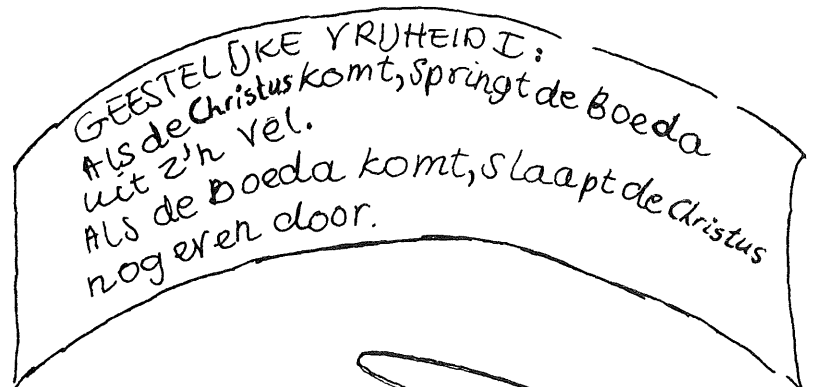 GEESTELIJKE VRIJHEID I:
Als de Christus komt, springt de Boeda
uit z'n vel.
Als de Boeda komt, slaapt de Christus
nog even door.